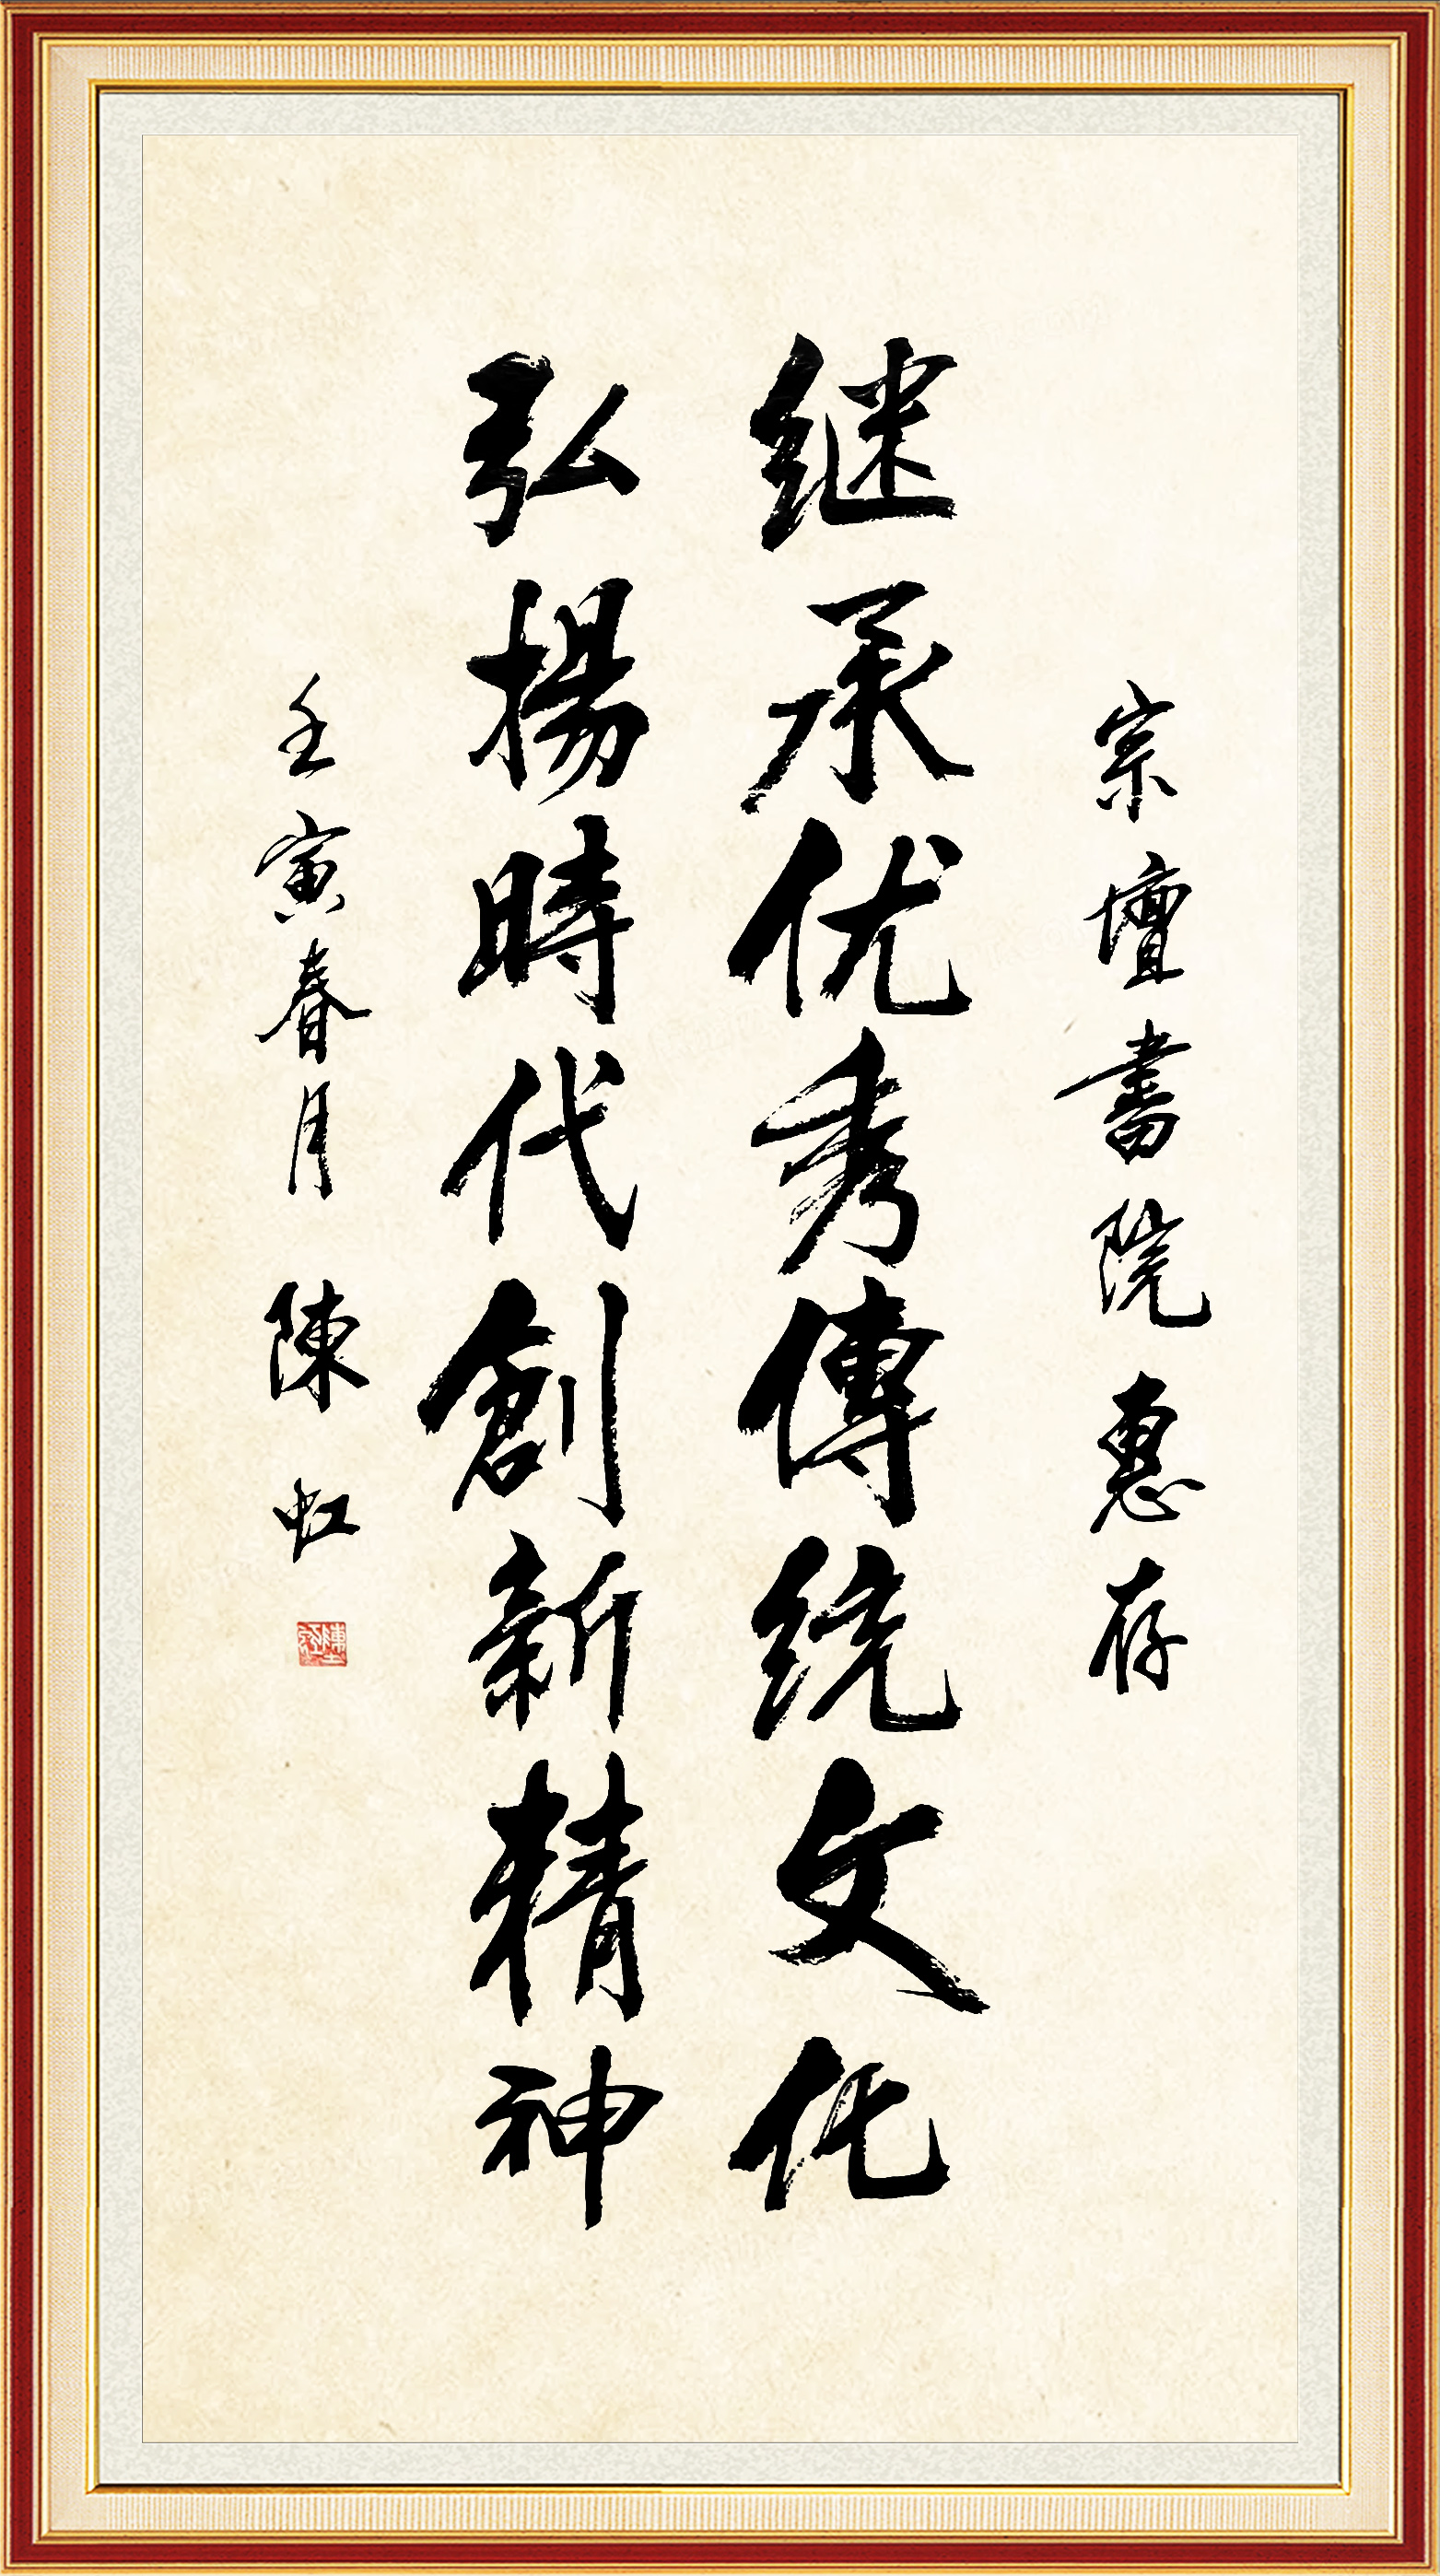 宗壇書院惠存
继承优秀傳统文化
弘揚時代創新精神
壬寅春月 陳虹